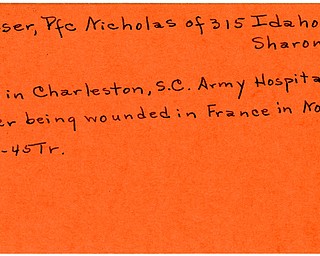 ser, Pfc Nicholas of 315 Idaho
Sharon
in Charleston, S.C. Army Hospita
er being wounded in France in No
-45 Tr.